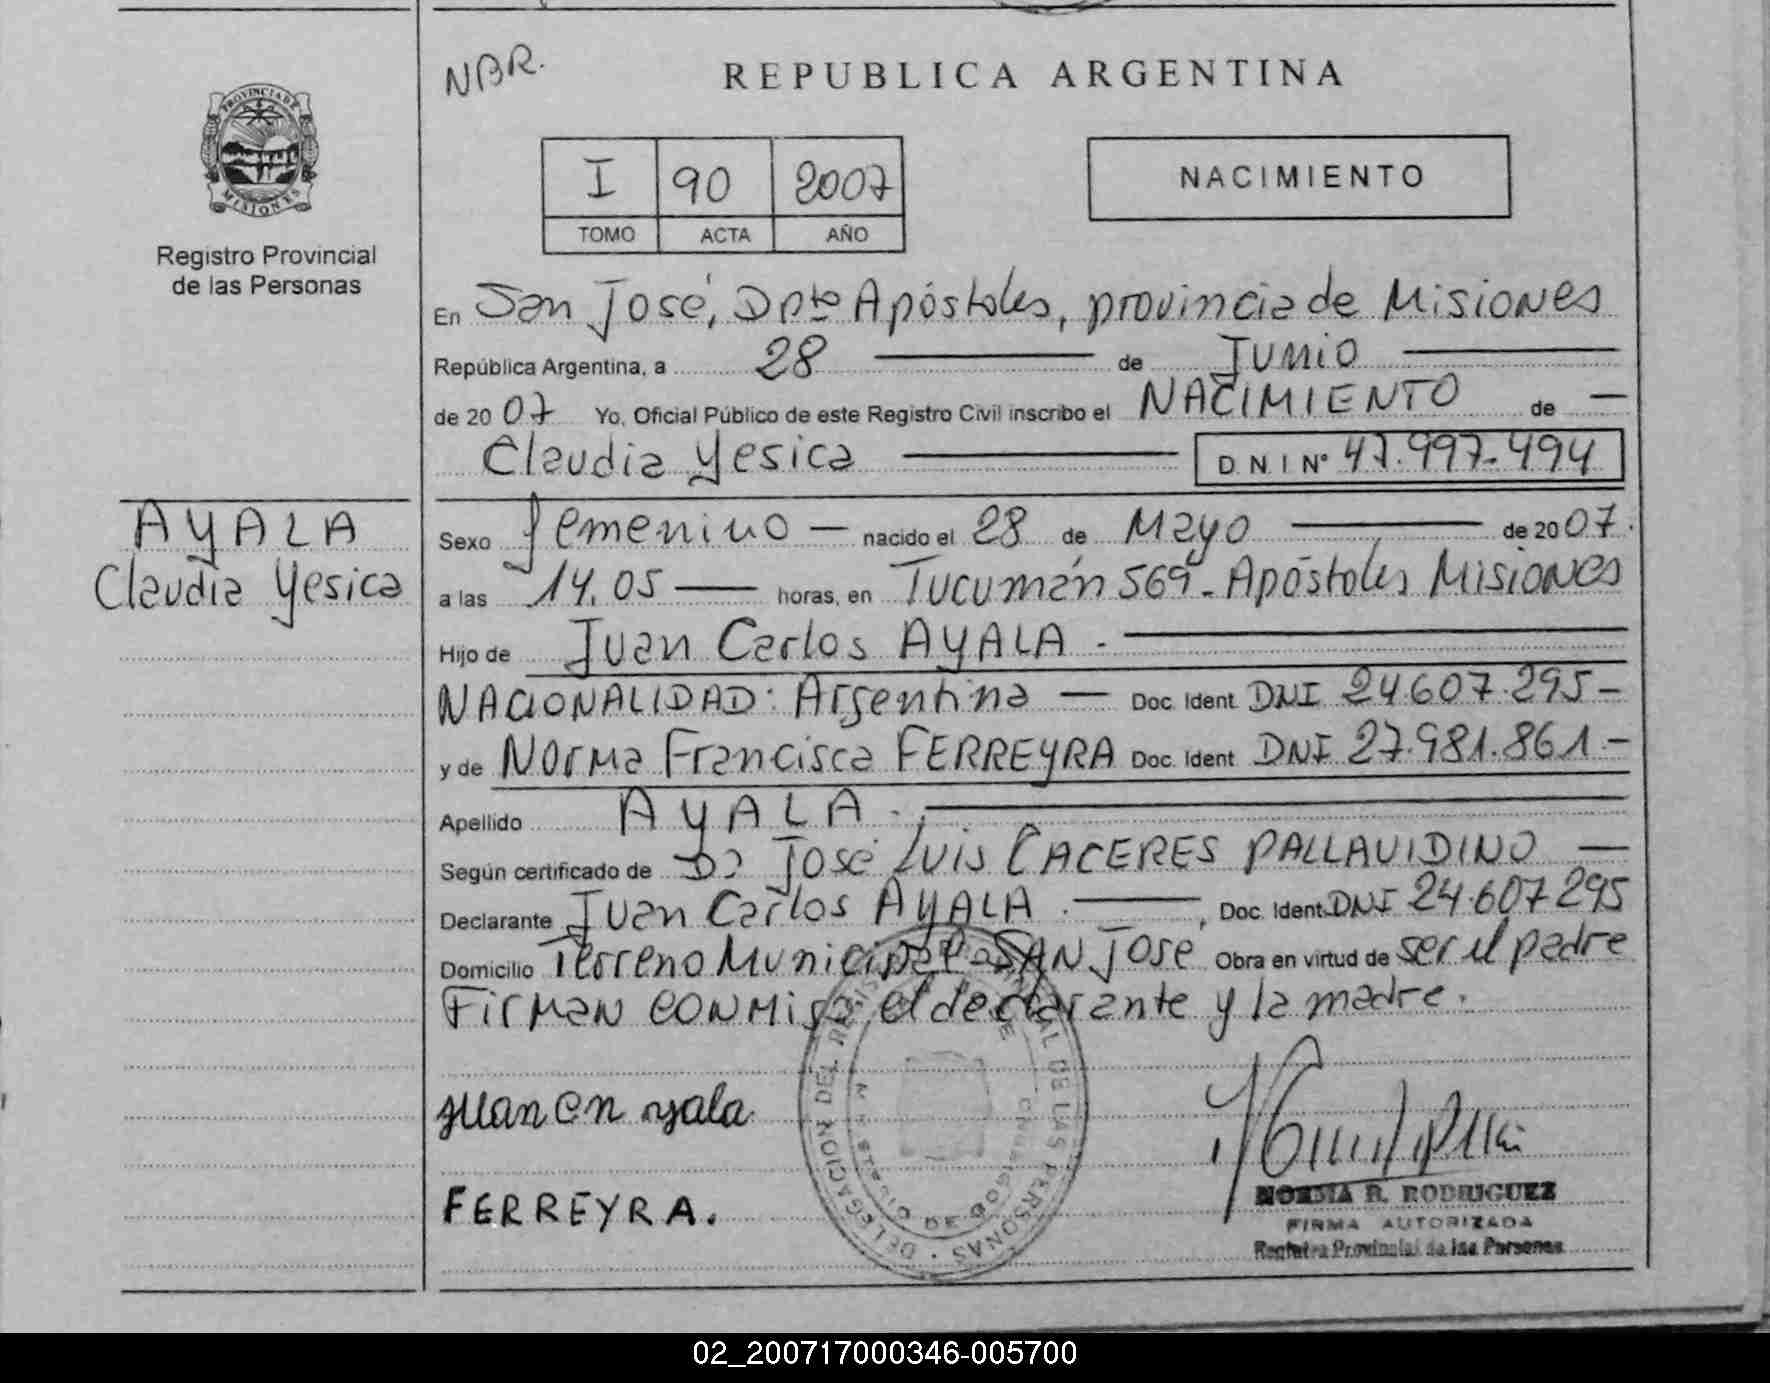 NBR.
REPUBLICA ARGENTINA
PROVINCIA DE MISIONES
Registro Provincial
de las Personas
I 90 2007
TOMO ACTA AÑO
NACIMIENTO
En San José, Dpto Apóstoles, provincia de Misiones
República Argentina, a 28 de Junio
de 2007 Yo, Oficial Público de este Registro Civil inscribo el NACIMIENTO de
Claudia Yesica D.N.I Nº 47.997.494
AYALA
Claudia Yesica
Sexo femenino nacido el 28 de Mayo de 2007.
a las 14.05 horas, en Tucumán 569 - Apóstoles Misiones
Hijo de Juan Carlos AYALA.
NACIONALIDAD: Argentina Doc. Ident. DNI 24.607.295
y de Norma Francisca FERREYRA Doc. Ident. DNI 27.981.861.
Apellido AYALA.
Según certificado de Dr José Luis CACERES PALLAVIDINO
Declarante Juan Carlos AYALA. , Doc. Ident. DNI 24.607295
Domicilio Terreno Municipal SAN José Obra en virtud de ser el padre
Firman conmigo, el declarante y la madre.
juan ayala
FERREYRA.
DELEGACION DEL REGISTRO PROVINCIAL DE LAS PERSONAS
NORMA R. RODRIGUEZ
FIRMA AUTORIZADA
Registro Provincial de las Personas
02_200717000346-005700